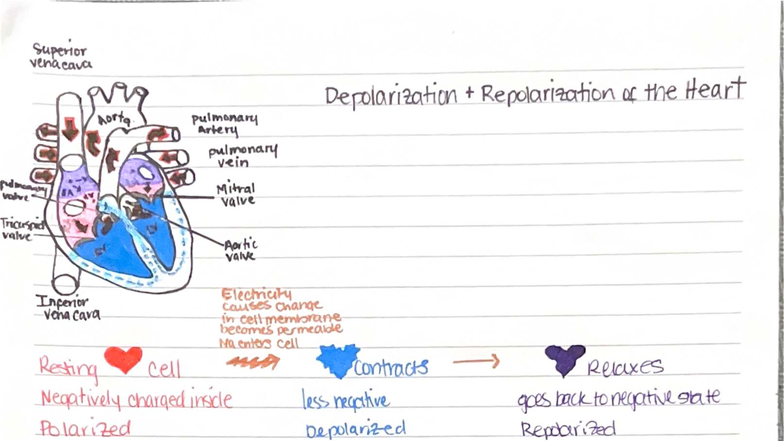 Superior
vena cava
Depolarization + Repolarization of the Heart
Aorta
pulmonary
Artery
pulmonary
vein
pulmonary
valve
Mitral
valve
Tricuspid
valve
Aortic
valve
Inferior
vena cava
Electricity
causes change
in cell membrane
becomes permeable
Na enters cell
Resting cell
Contracts
Relaxes
Negatively charged inside
less negative
goes back to negative state
Polarized
Depolarized
Repolarized